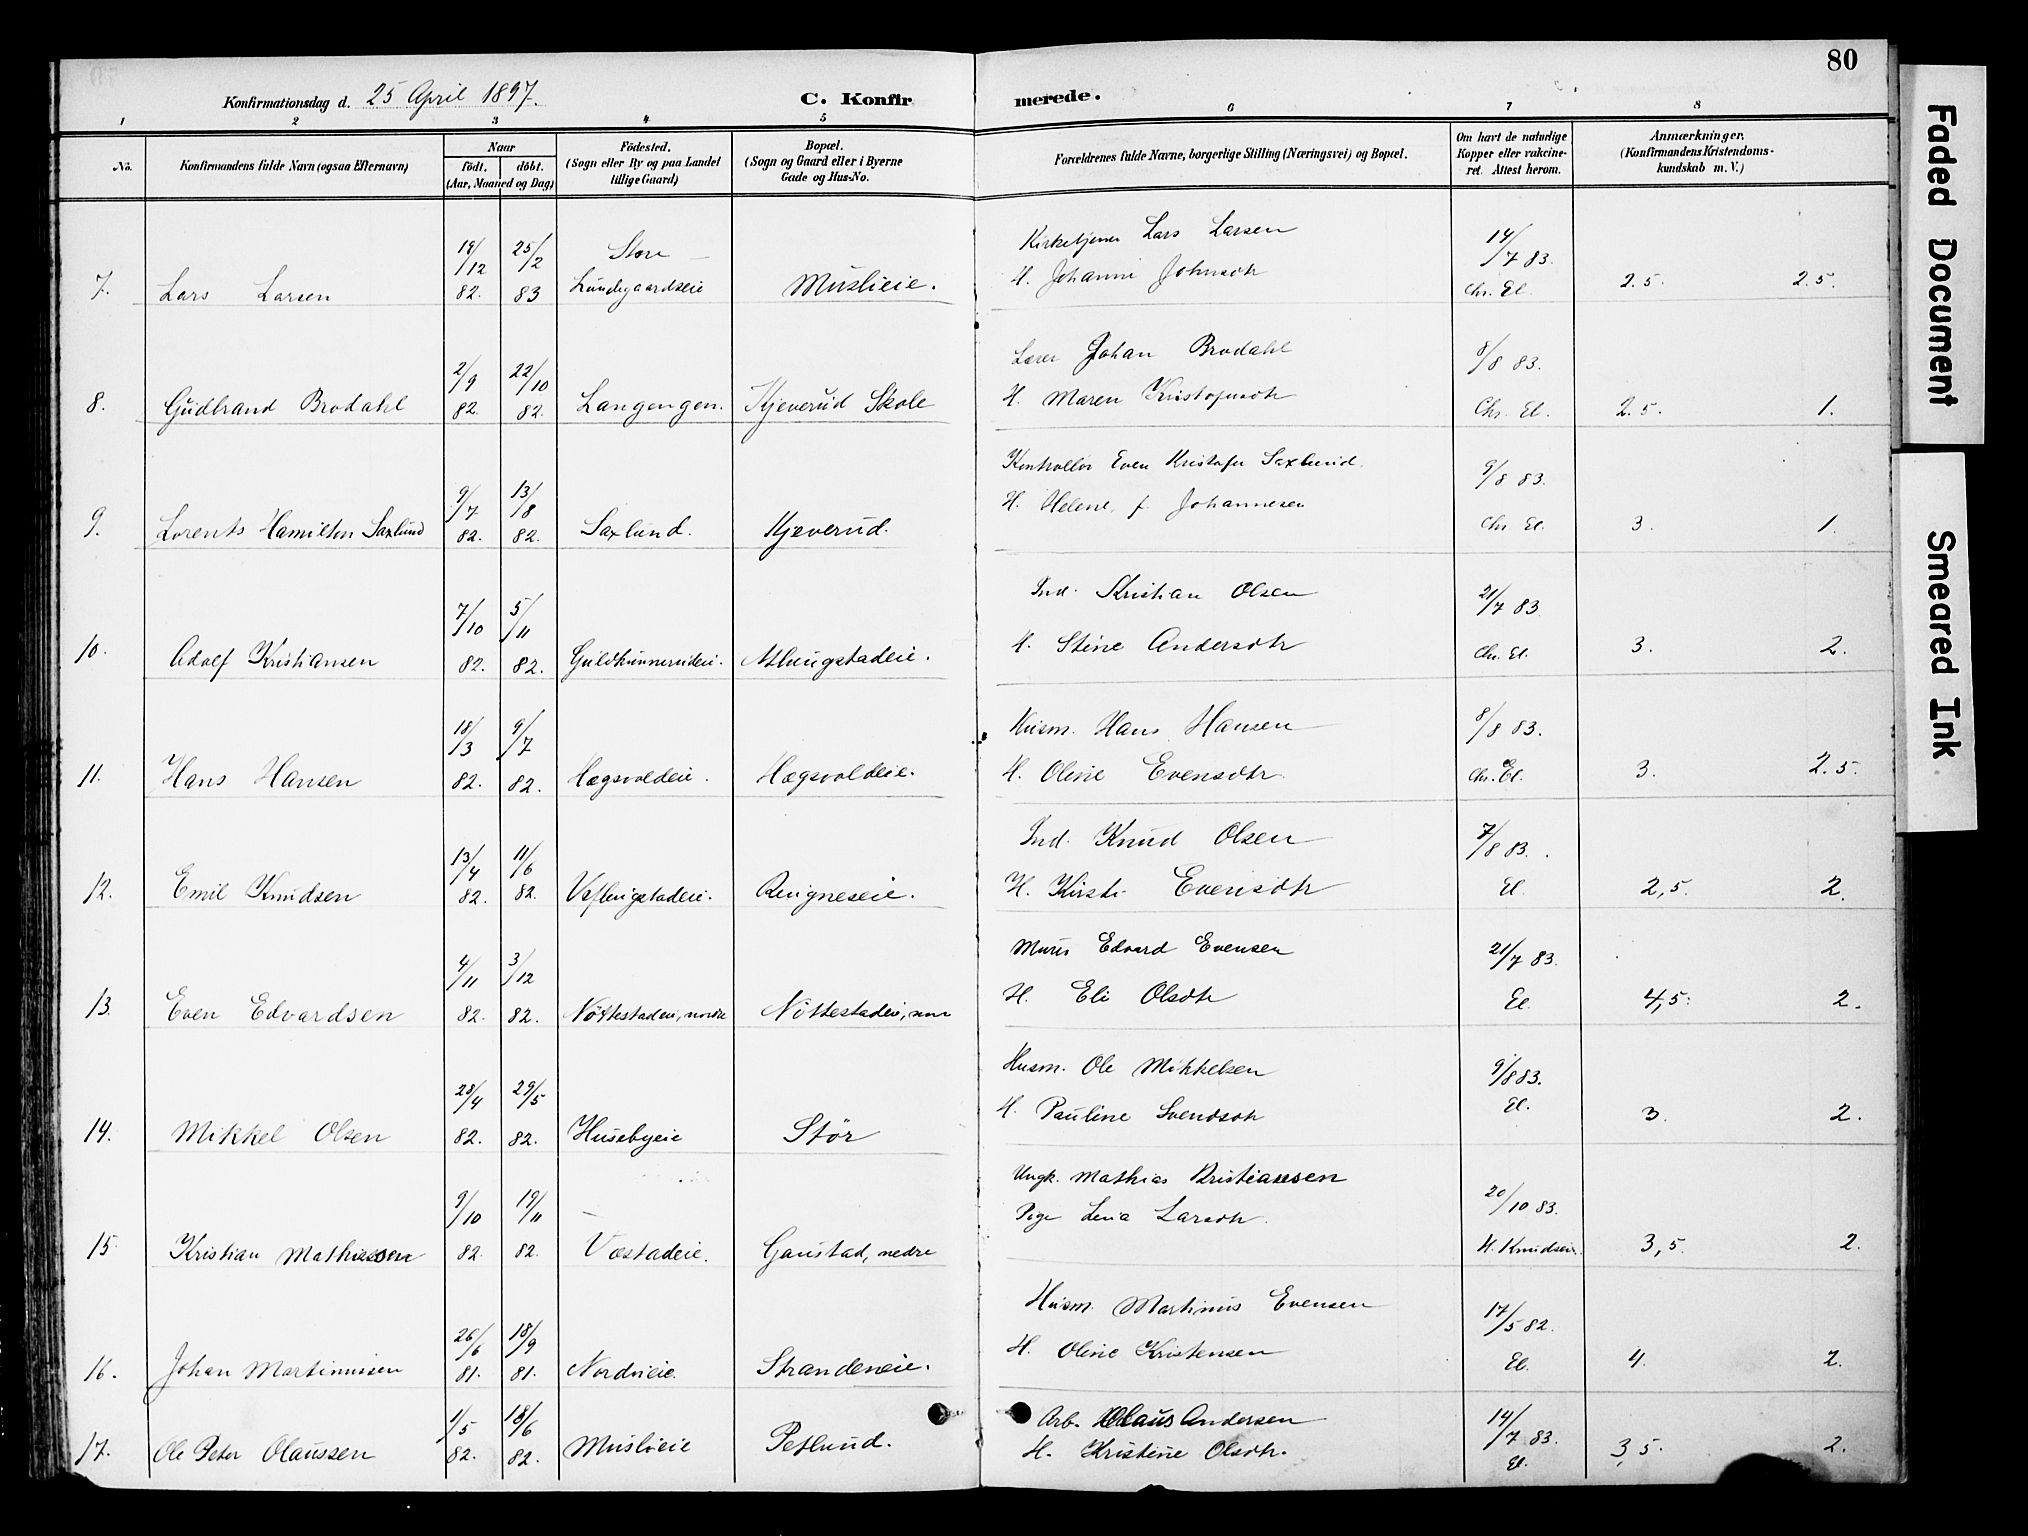 80
Konfirmationsdag d. 25 April 1897.
C. Konfirmerede.
1 2 3 4 5 6 7 8
No.
Konfirmandens fulde Navn (ogsaa Efternavn)
Naar
født. døbt.
(Aar, Maaned og Dag)
Fødested.
(Sogn eller By og paa Landet
tillige Gaard)
Bopæl.
(Sogn og Gaard eller i Byerne
Gade og Hus-No.
Forældrenes fulde Navne, borgerlige Stilling (Næringsvei) og Bopæl.
Om havt de naturlige
Kopper eller vakcine-
ret. Attest herom.
Anmærkninger.
(Konfirmandens Kristendoms-
kundskab m. V.)
19/12 25/2 Store Kirketjener Lars Larsen 14/7 83.
7. Lars Larsen 82. 83 Lundegaardseie Muslieie. H. Johanne Johnsdtr Chr. El. 2.5. 2.5.
2/9 22/10 Lærer Johan Brodahl 8/8 83.
8. Gudbrand Brodahl 82. 82. Langengen. Kjeverud Skole H. Maren Kristofersdtr Chr. El. 2.5. 1.
9/7 13/8 Kontrollør Even Kristofer Saxlund. 9/8 83.
9. Lorents Hamilton Saxlund 82. 82. Saxlund. Kjeverud. H. Helene, f. Johannesen Chr. El. 3. 1.
7/10 5/11 Ind. Kristian Olsen 21/7 83.
10. Adolf Kristiansen 82. 82. Guldhunnerudeie. Alhungstadeie. H. Stine Andersdtr Chr. El. 3. 2.
18/3 9/7 Husm. Hans Hansen 8/8 83.
11. Hans Hansen 82. 82. Hægsvoldeie. Hægsvoldeie. H. Oline Evensdtr. Chr. El. 3. 2.5.
13/4 11/6 Ind. Knud Olsen 7/8 83.
12. Emil Knudsen 82. 82. Veflingstadeie. Ringneseie. H. Kirsti Evensdtr El. 2,5. 2.
4/11 3/12 Murer Edvard Evensen 21/7 83.
13. Even Edvardsen 82. 82. Nöttestadeie, nordre Nöttestadeie, H. Eli Olsdtr El. 4,5. 2.
28/4 29/5 Husm. Ole Mikkelsen 9/8 83.
14. Mikkel Olsen 82. 82. Husebyeie Stör H. Pauline Svendsdtr El. 3. 2.
9/10 19/11 Ungk. Mathias Kristiansen 20/10 83.
Pige Lena Larsdtr.
15. Kristian Mathiassen 82. 82. Væstadeie. Gaustad, nedre H. Knudsen 3,5. 2.
26/6 18/9 Husm. Martinus Evensen 17/5 82.
16. Johan Martinussen 81. 81. Nordvieie. Strandeneie. H. Oline Kristensen El. 4. 2.
1/5 18/6 Arb. Olaus Andersen 14/7 83.
17. Ole Peter Olaussen 82. 82. Muslieie Petlund. H. Kristine Olsdtr. El. 3,5. 2.
Faded Document
Smeared Ink